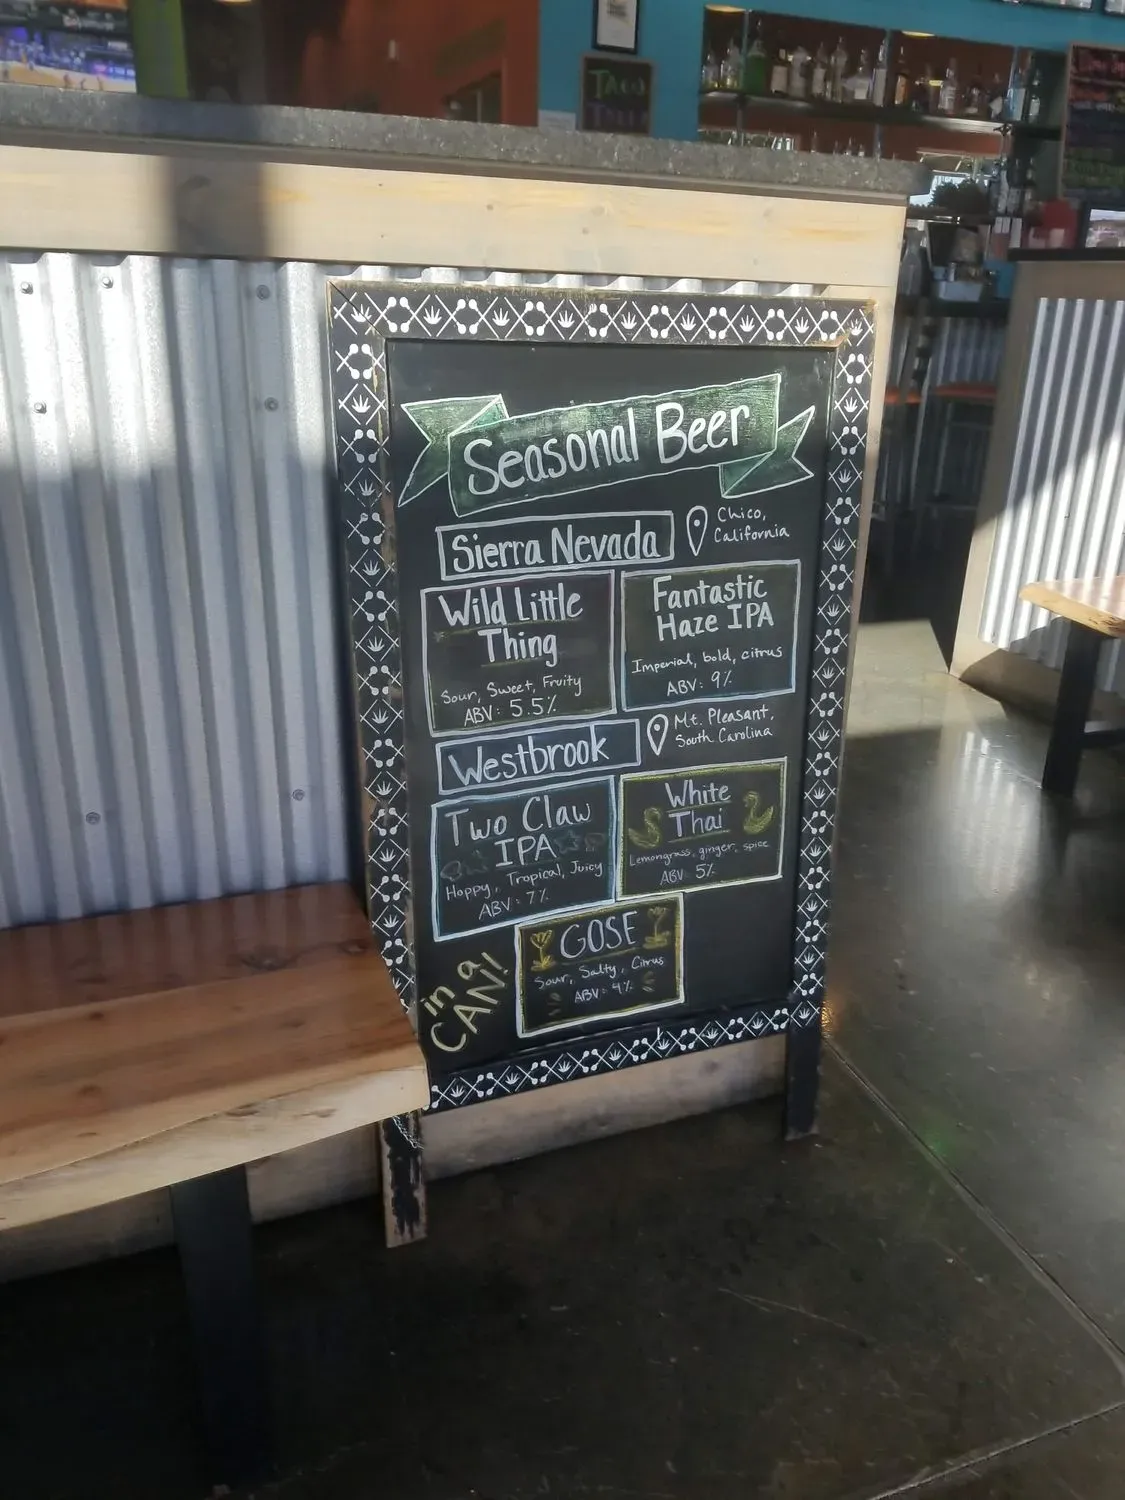 TACO
Seasonal Beer
Sierra Nevada
Chico,
California
Wild Little
Thing
Sour, Sweet, Fruity
ABV: 5.5%
Fantastic
Haze IPA
Imperial, bold, citrus
ABV: 9%
Westbrook
Mt. Pleasant,
South Carolina
Two Claw
IPA
Hoppy, Tropical, Juicy
ABV: 7%
White
Thai
Lemongrass, ginger, spice
ABV 5%
in a
CAN!
GOSE
Sour, Salty, Citrus
ABV: 4%